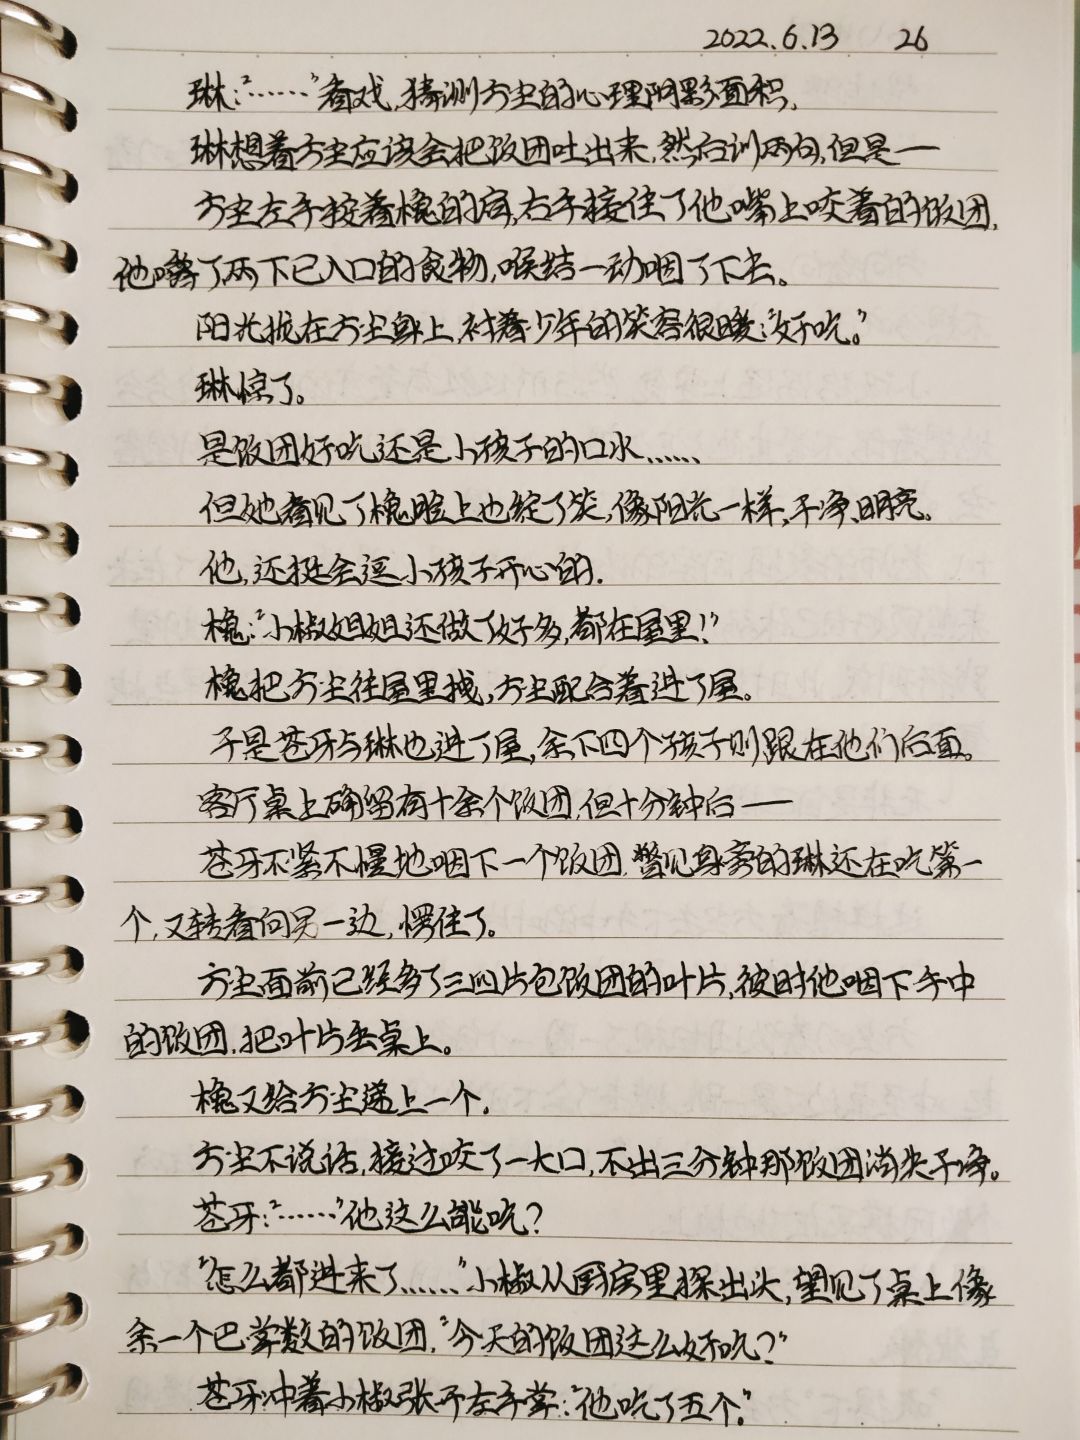 2022.6.13 26
琳：“……”看戏，猜测方尘的心理阴影面积，
琳想着方尘应该会把饭团吐出来，然后训两句，但是一
方尘左手按着槐的肩，右手接住了他嘴上咬着的饭团，
他嚼了两下已入口的食物，喉结一动咽了下去。
阳光拢在方尘身上，衬着少年的笑容很暖：“好吃。”
琳惊了。
是饭团好吃还是小孩子的口水……
但她看见了槐脸上也绽了笑，像阳光一样，干净、明亮。
他，还挺会逗小孩子开心的．
槐：“小椒姐姐还做了好多，都在屋里！”
槐把方尘往屋里拽，方尘配合着进了屋。
于是苍牙与琳也进了屋，余下四个孩子则跟在他们后面。
客厅桌上确留有十余个饭团，但十分钟后——
苍牙不紧不慢地咽下一个饭团，瞥见身旁的琳还在吃第一
个，又转看向另一边，愣住了。
方尘面前已经多了三四片包饭团的叶片，彼时他咽下手中
的饭团，把叶片丢桌上。
槐又给方尘递上一个，
方尘不说话，接过咬了一大口，不出三分钟那饭团消失干净。
苍牙：“……”他这么能吃？
“怎么都进来了……”小椒从厨房里探出头，望见了桌上像
余一个巴掌数的饭团，“今天的饭团这么好吃？”
苍牙冲着小椒张开左手掌：“他吃了五个。”